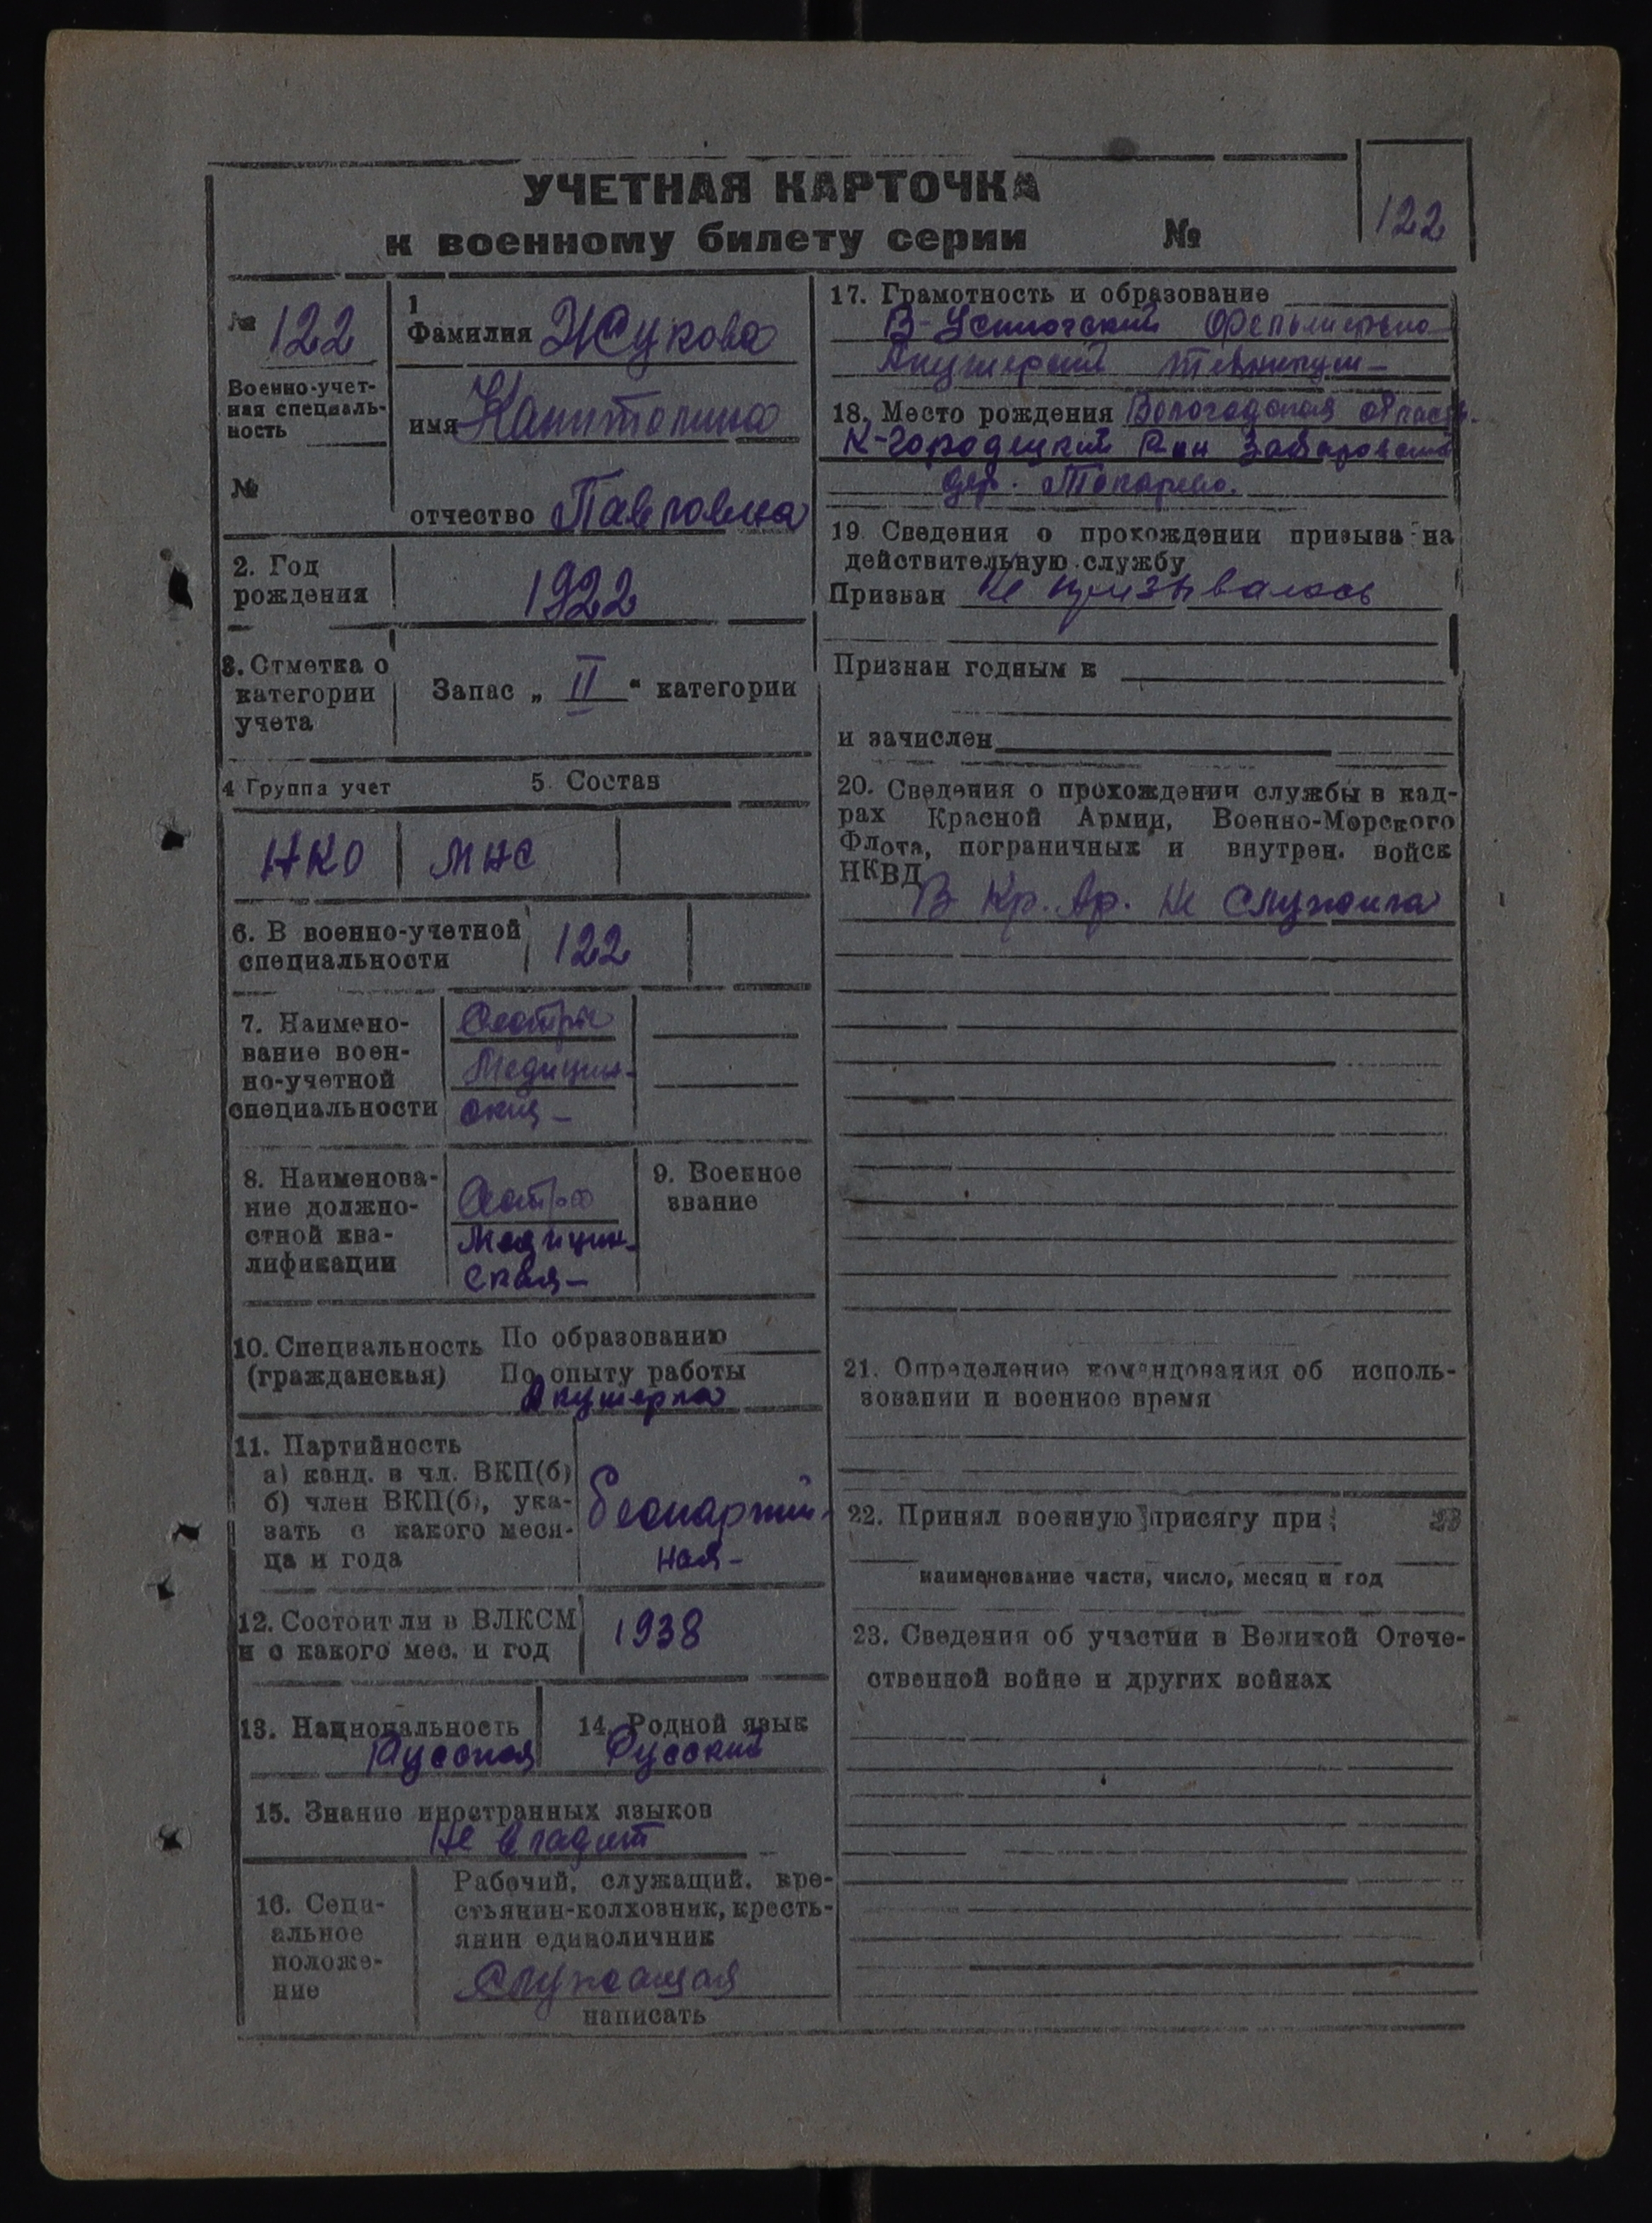 УЧЕТНАЯ КАРТОЧКА
к военному билету серии №
122
№ 122
Военно-учет-
ная специаль-
ность
№
1
Фамилия Жукова
имя Капитолина
отчество Павловна
2. Год
рождения
1922
3. Отметка о
категории
учета
Запас „ II “ категории
4 Группа учет
5. Состав
НКО
МНС
6. В военно-учетной
специальности
122
7. Наимено-
вание воен-
но-учетной
специальности
Сестры
Медицин-
ския-
8. Наименова-
ние должно-
стной ква-
лификации
Сестра
Медицин-
ская-
9. Военное
звание
10. Специальность
(гражданская)
По образованию
По опыту работы
Акушерка
11. Партийность
а) канд. в чл. ВКП(б)
б) член ВКП(б), ука-
зать с какого меся-
ца и года
беспартий-
ная-
12. Состоит ли в ВЛКСМ
и с какого мес. и год
1938
13. Национальность
Русская
14. Родной язык
Русский
15. Знание иностранных языков
Не владеет
16. Соци-
альное
положе-
ние
Рабочий, служащий, кре-
стьянин-колхозник, кресть-
янин единоличник
Служащая
написать
17. Грамотность и образование
В-Устюгский Фельшерско
Акушерский техникум-
18. Место рождения Вологодская область.
К-Городецкий Р-он
дер. Токарево.
19. Сведения о прохождении призыва на
действительную службу
Призван Не призывалась
Признан годным к
и зачислен
20. Сведения о прохождении службы в кад-
рах Красной Армии, Военно-Морского
Флота, пограничных и внутрен. войск
НКВД
В Кр. Ар. Не служила
21. Определение командования об исполь-
зовании и военное время
22. Принял военную присягу при
23
наименование части, число, месяц и год
23. Сведения об участии в Великой Отече-
ственной войне и других войнах